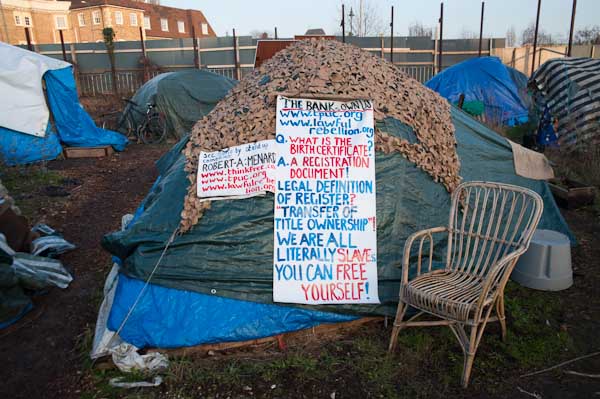 THE BANK OWN US
www.tpuc.org
www.lawful
rebellion.org
Q. WHAT IS THE
BIRTH CERTIFICATE?
A. A REGISTRATION
DOCUMENT!
LEGAL DEFINITION
OF REGISTER?
"TRANSFER OF
TITLE OWNERSHIP"!
WE ARE ALL
LITERALLY SLAVES
YOU CAN FREE
YOURSELF!
ROBERT-A:MENARD
www.thinkfree.ca
www.tpuc.org
www.lawfulrebel
lion.org